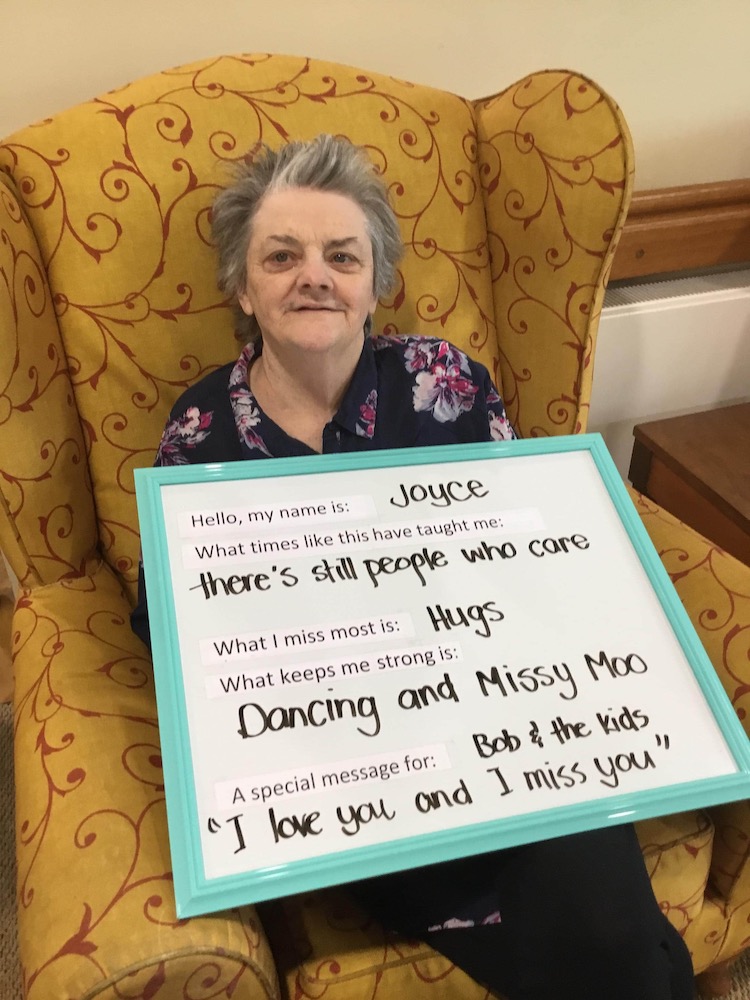 Hello, my name is: Joyce
What times like this have taught me:
there's still people who care
What I miss most is: Hugs
What keeps me strong is:
Dancing and Missy Moo
A special message for: Bob & the kids
"I love you and I miss you"